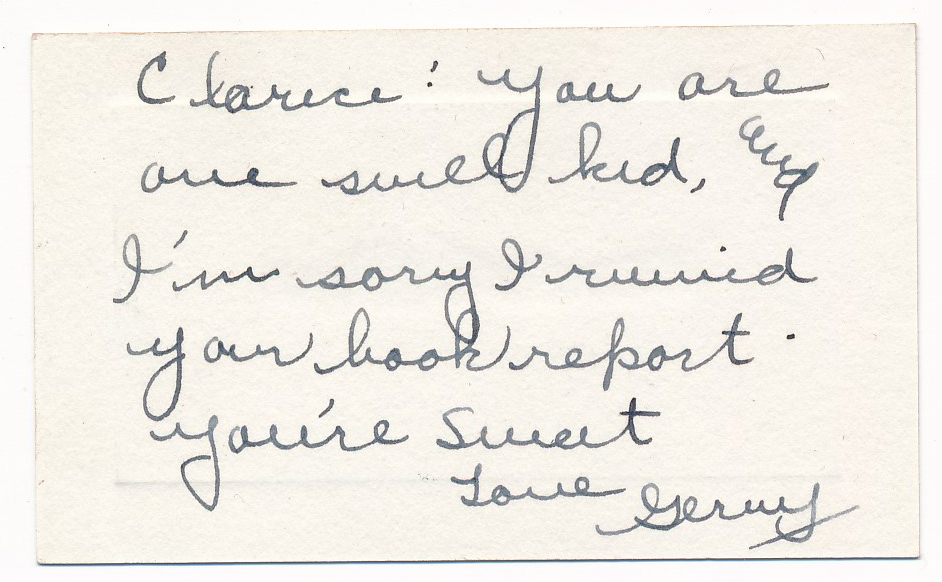 Clarice: you are
one swell kid, and
I'm sorry I ruined
your book report.
you're sweet
Love Gerry